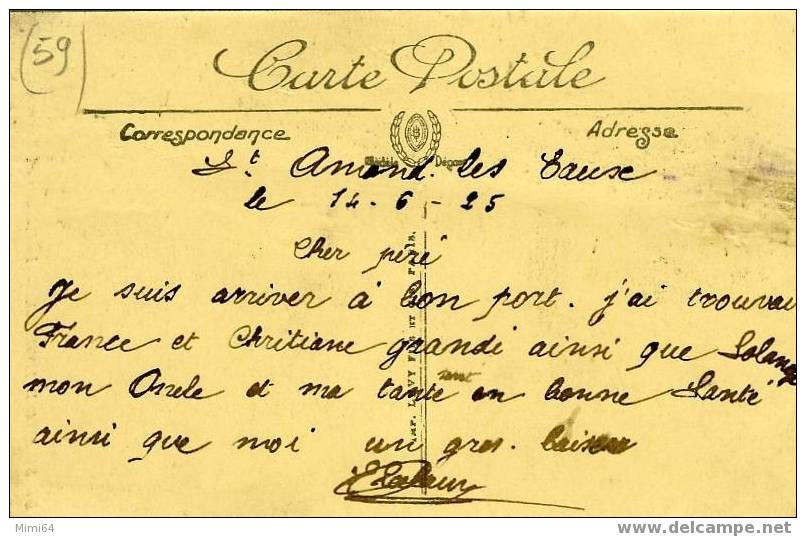 (59)
Carte Postale
Correspondance
Adresse
Modèle Déposé
St Amand. les Eaux
le 14-6-25
Cher pére
Je suis arriver à bon port. j'ai trouvai
France et Chritiane grandi ainsi que Solange
mon Oncle et ma tante sont en bonne Santé
ainsi que moi un gros. baiser
IMP. LEVY FILS ET PARIS.
Mimi64
www.delcampe.net